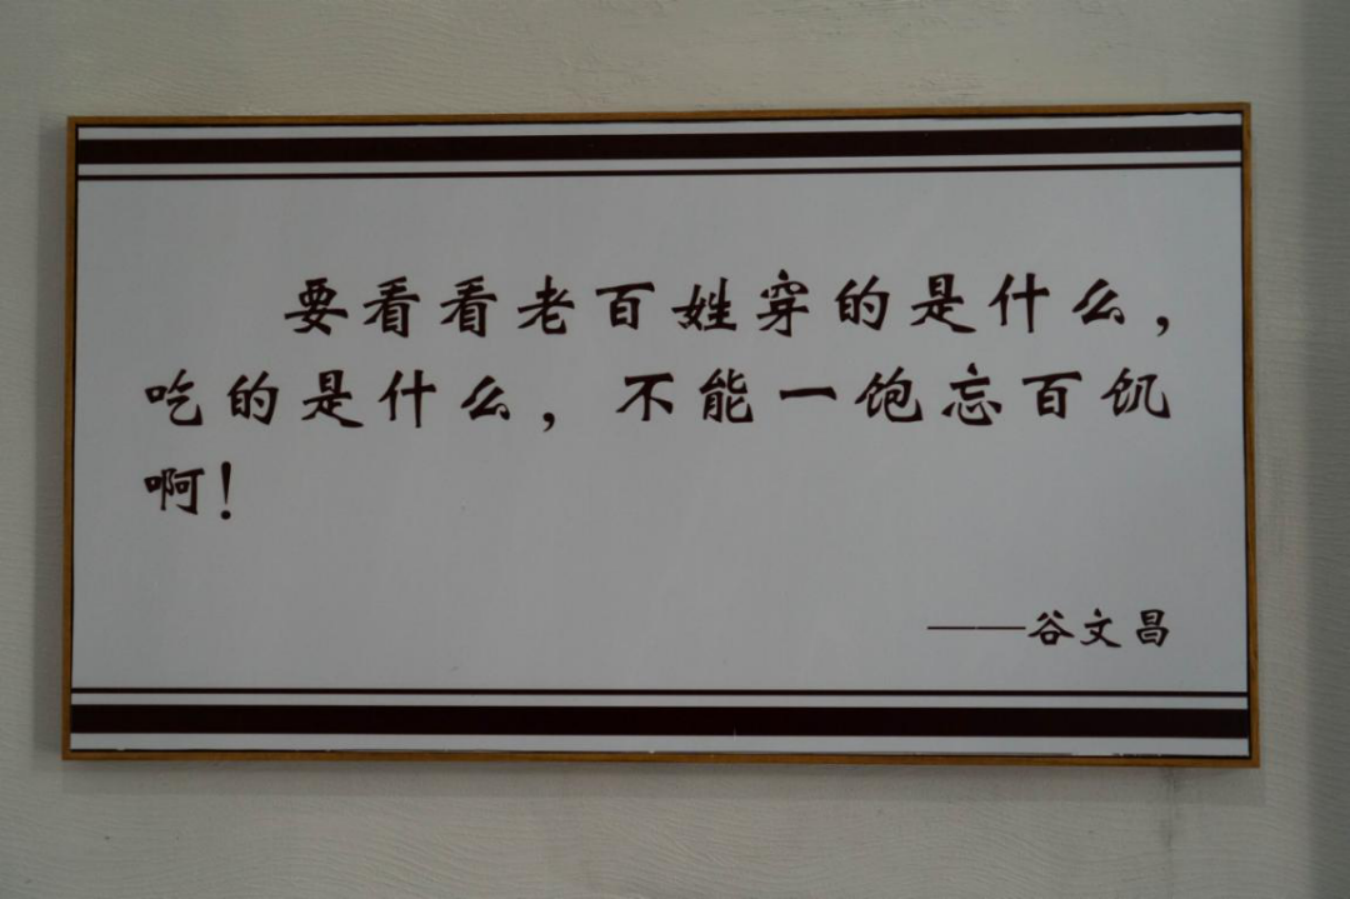 要看看老百姓穿的是什么，
吃的是什么，不能一饱忘百饥
啊！
——谷文昌